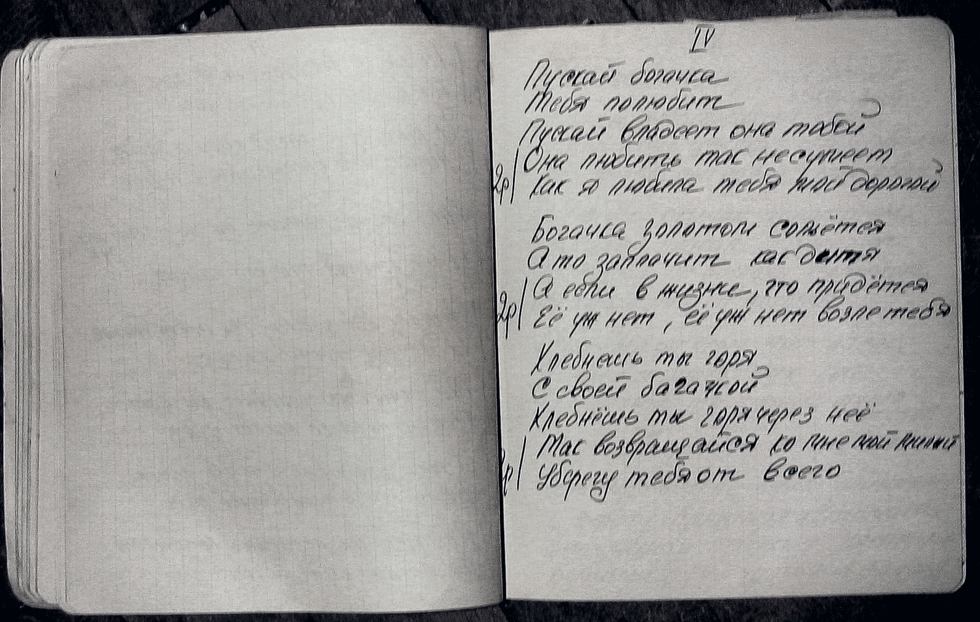 IV
Пускай богачка
Тебя полюбит
Пускай владеет она тобой
Она любить так несумеет
2р| Как я любила тебя мой дорогой
Богачка золотом сольётся
А то заплачит как дитя
А если в жизни, что прийдётся
2р| Её уж нет, её уж нет возле тебя
Хлебнешь ты горя
С своей багачкой
Хлебнёшь ты горя через неё
Так возвращайся ко мне мой милый
2р| Уберегу тебя от всего